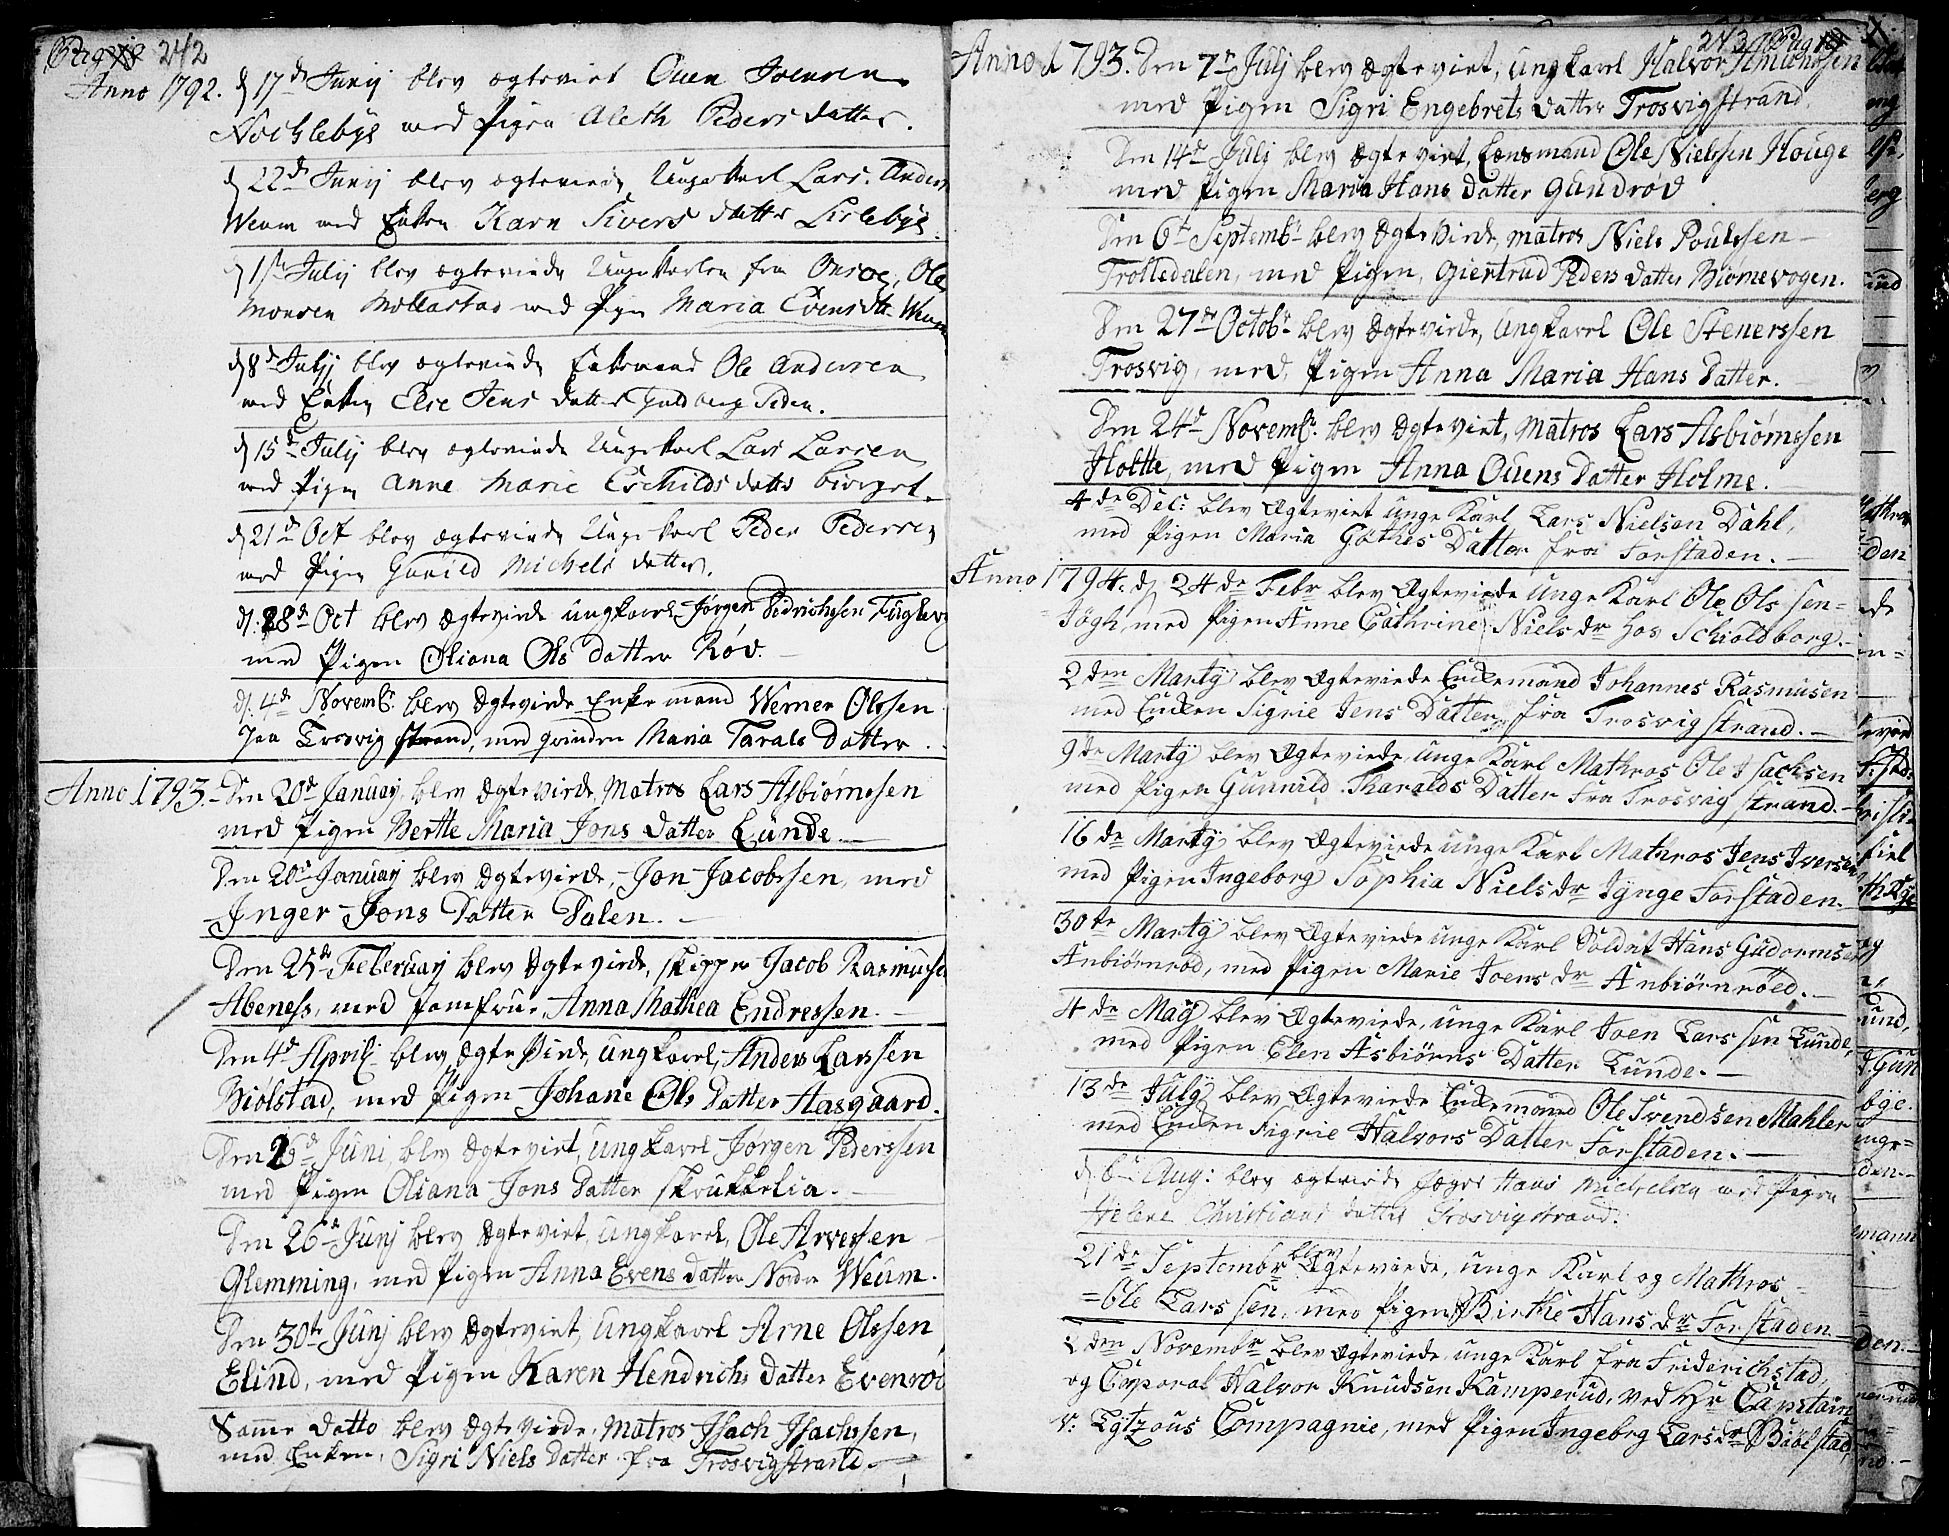 Pag 242
Anno 1792. d 17de Junij blev ægteviet Ouen Joensen
Nochlebye med Pigen Aleth Peders datter.
d 22de Junij blev ægteviede Ungekarl Lars Anders
Weum med Enken Karn Sivers datter Lislebye.
d 1ste Julij blev ægteviede Ungekarlen fra Onsøe, Ole
Monsen Mollastad med Pigen Maria Evensdtr Weum
d 8de Julij blev ægteviede Enkemand Ole Andersen
med Enken Else Jens datter
d 15de Julij blev ægteviede Ungekarl Lars Larsen
med Pigen Anne Marie Eschilds datter
d 21de Oct blev ægteviede Ungekarl Peder Pedersen
med Pigen Gunild Michels datter.
d. 28de Oct blev Ægtevirde ungkarl Jørgen Didrichsen Fuglevg
med Pigen Oliana Ols Datter Röd.
d. 4de Novembr. blev Ægtevirde Enkemand Werner Olssen
paa Trosvig strand, med qvinden Maria Tarals Datter.
Anno 1793. Den 20de Januarj blev Ægtevirde, Matros Lars Asbiørnssen
med Pigen Berthe Maria Jons Datter Lunde.
Den 20de Januarj blev Ægtevirde, Jon Jacobssen, med
Inger Jons Datter Dalen.
Den 25de Februarj blev Ægtevirde, Skipper Jacob Rasmusse
Abeness, med Jomfrue, Anna Mathea Endressen.
Den 4de Aprilj blev Ægtevirde, Ungkarl, Anders Larssen
Biölstad, med Pigen Johane Ols Datter Aasgaard.
Den 26de Juni blev Ægteviet, Ungkarl Jørgen Pederssen
med Pigen Oliana Jons Datter Skrukkelia.
Den 26de Junj blev Ægteviet, Ungkarl, Ole Arvessen
Glemming, med Pigen Anna Evens Datter Nordre Weum.
Den 30te Junj blev Ægteviet, Ungkarl Arne Olssen
Elind, med Pigen Karen Hendrichs Datter Evenröd
Samme Datto blev Ægtevirde, Matros Isach Isachssen,
med Enken, Sigri Niels Datter fra Trosvigstrand.
243 Pag
Anno 1793. Den 7de Julj blev Ægteviet, Ungkarl Halvor Amundssen
med Pigen Sigri Engebrets Datter Trosvigstrand.
Den 14de Julj blev Ægteviet, Lensmand Ole Nielssen Houge
med Pigen Maria Hans Datter Gundröd
Den 6te Septembr. blev Ægtevirde, Matros Niels Poulssen
Trolledalen, med Pigen, Giertrud Peders Datter Biørnevogen.
Den 27de Octobr. blev Ægtevirde, Ungkarl Ole Stenerssen
Trosvig, med, Pigen Anna Maria Hans Datter.
Den 24de Novembr. blev Ægteviet, Matros Lars Asbiørnssen
Holtte, med Pigen Anna Ouens Datter Holme.
4de Dec: blev Ægteviet unge Karl Lars Nielsen Dahl,
med Pigen Maria Gøthes Datter fra Forstaden.
Anno 1794. d 24de Febr blev Ægteviede unge Karl Ole Olssen=
=Jøgh, med Pigen Anne Cathrine Nielsdr hos Schioldborg.
2den Martij blev Ægteviede Enckemand Johannes Rasmusen
med Encken Sigrie Jens Datter, fra Trosvig strand.
9de Martij blev Ægteviede, unge Karl Mathros Ole Isachsen
med Pigen Gunnild Tharalds Datter fra Trosvig strand.
16de Martij blev Ægteviede unge Karl Mathros Jens Iversen
med Pigen Ingeborg Sophia Nielsdr Iynge Forstaden.
30te Martij blev Ægteviede unge Karl Soldat Hans Gudormsen
Anbiørnröd, med Pigen Marie Joensdr Anbiørnröed.
4de Maij blev Ægteviede, unge Karl Joen Larssen Lunde,
med Pigen Elen Asbiørns Datter Lunde.
13de Julij blev Ægteviede Enckemand Ole Svendsen Mahler
med Encken Sigrie Halvors Datter Forstaden.
d 6te Aug: blev ægteviede Hans Michelsen med Pigen
Helene Christians datter Trosvigstrand.
21de Septembr blev Ægteviede, unge Karl og Mathros
=Ole Larssen, med Pigen Birthe Hansdr Forstaden
2den Novembr blev Ægteviede, unge Karl fra Friderichstad,
og Corporal Halvor Knudsen Kamperud, ved Hr Capetain
v: Lytzous Compagnie, med Pigen Ingeborg Larsdr Bıölstad.